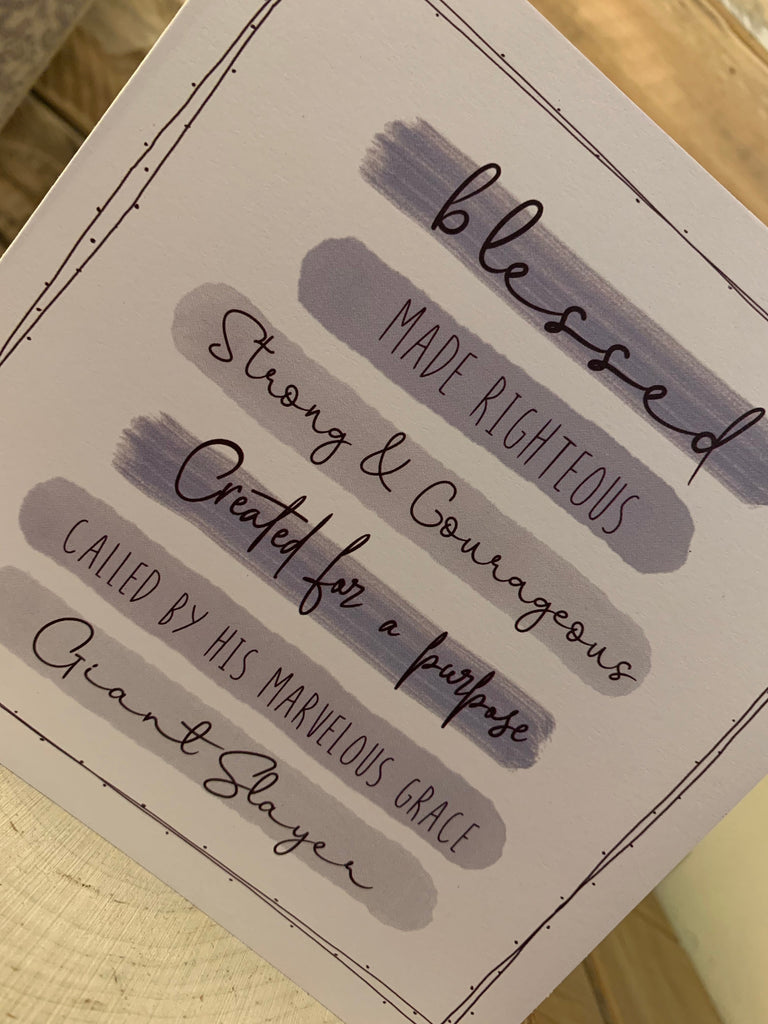 blessed
MADE RIGHTEOUS
Strong & Courageous
Created for a purpose
CALLED BY HIS MARVELOUS GRACE
Giant Slayer